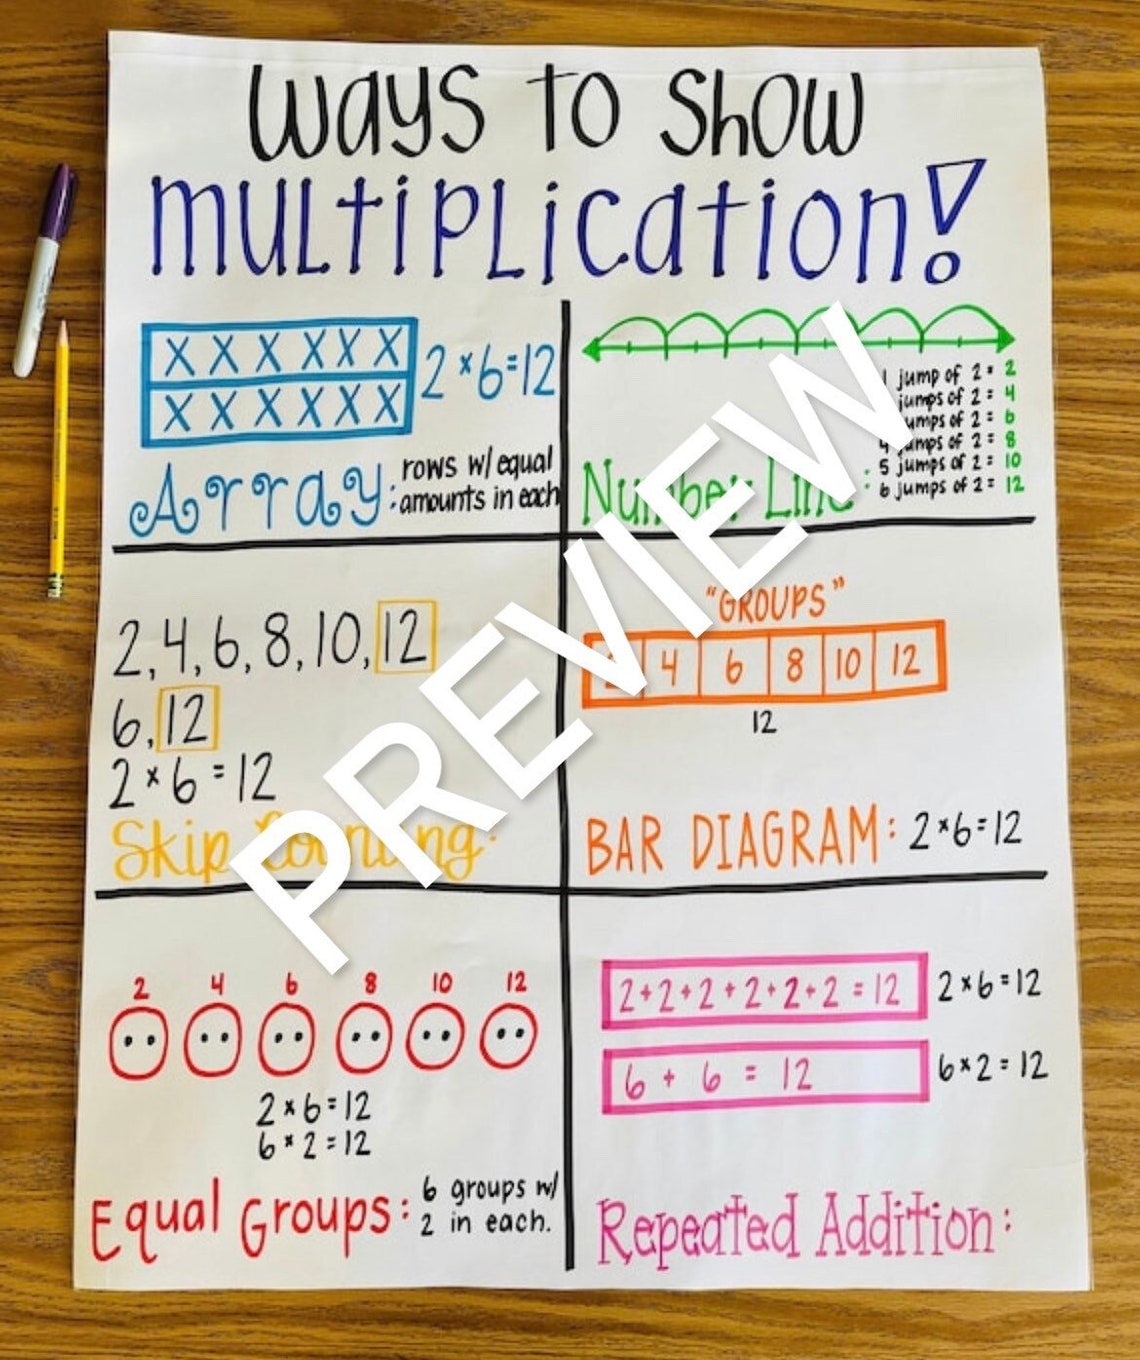 Ways to Show
multiplication!
X X X X X X
X X X X X X
2 × 6 = 12
Array: rows w/ equal
amounts in each
1 jump of 2 = 2
jumps of 2 = 4
jumps of 2 = 6
4 jumps of 2 = 8
5 jumps of 2 = 10
6 jumps of 2 = 12
Number Line:
2, 4, 6, 8, 10, 12
6, 12
2 × 6 = 12
Skip Counting:
"GROUPS"
2 4 6 8 10 12
12
BAR DIAGRAM: 2 × 6 = 12
2 4 6 8 10 12
2 × 6 = 12
6 × 2 = 12
Equal Groups: 6 groups w/
2 in each.
2+2+2+2+2+2 = 12 2 × 6 = 12
6 + 6 = 12 6 × 2 = 12
Repeated Addition:
PREVIEW